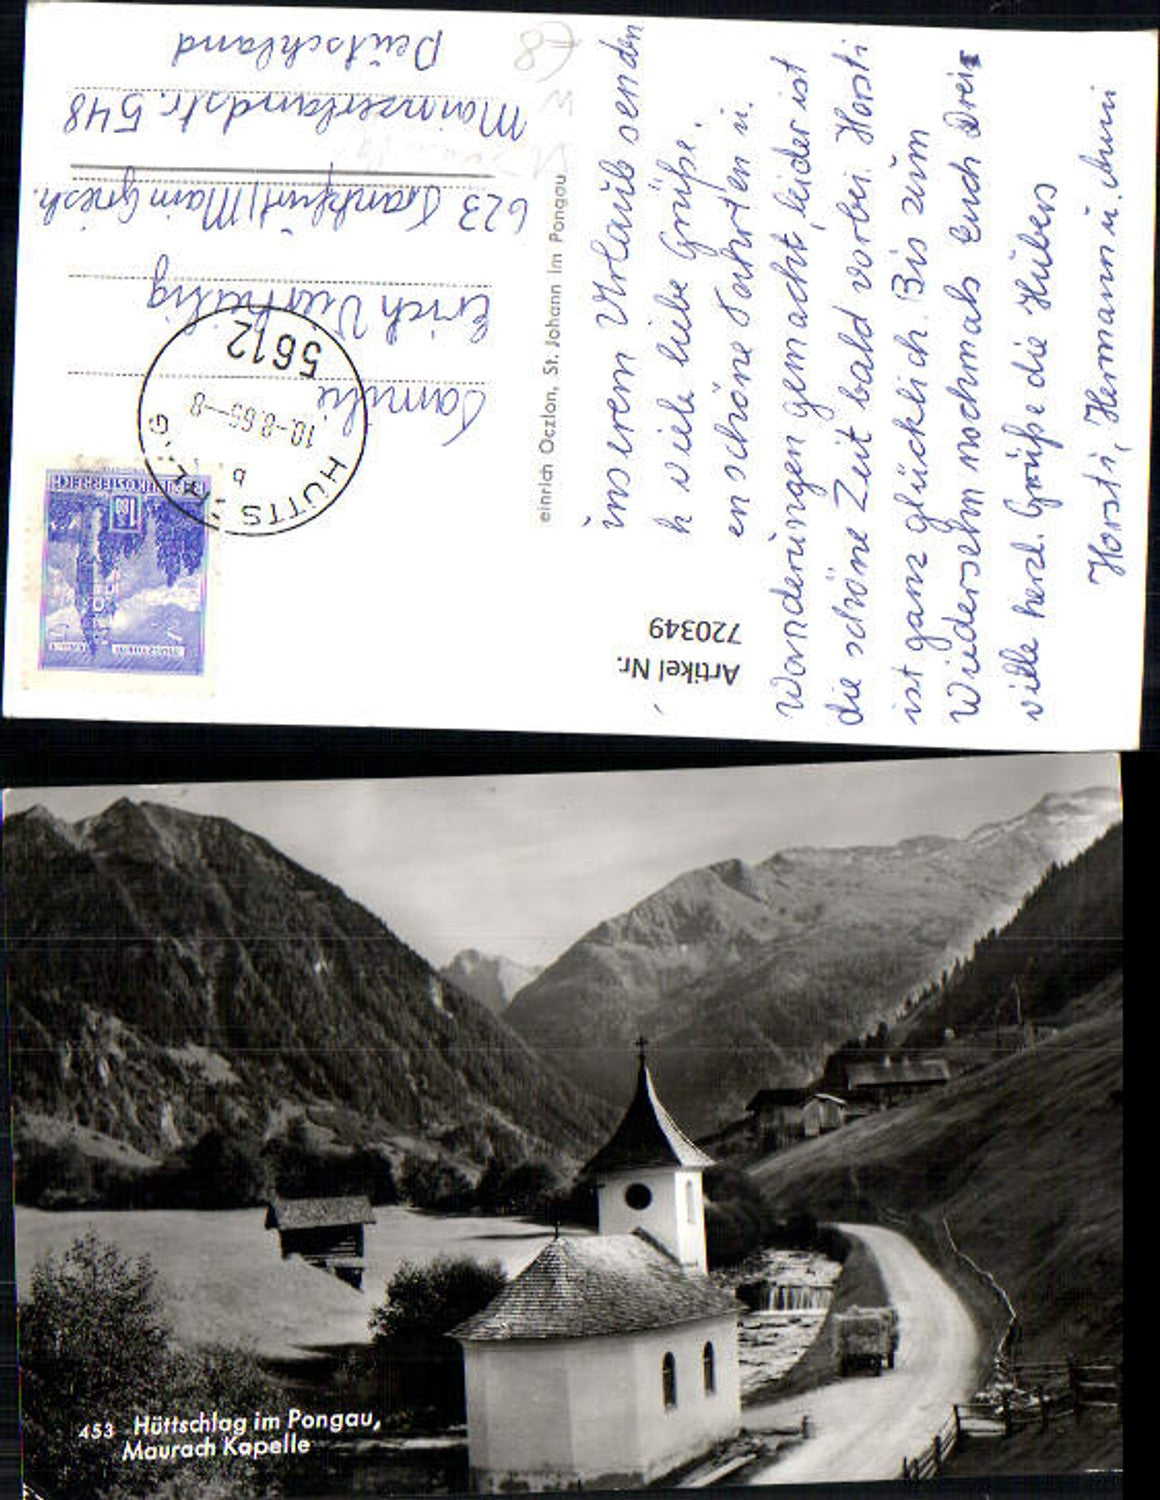 inserem Urlaub senden
h viele liebe Grüße.
en schöne Fahrten u.
Wanderungen gemacht, leider ist
die schöne Zeit bald vorbei. Horsti
ist ganz glücklich. Bis zum
Wiedersehn nochmals Euch Drein
viele herzl. Grüße die Hubers
Horsti, Hermann u. Anni
Artikel Nr.
720349
einrich Oczlon, St. Johann im Pongau
REPUBLIK ÖSTERREICH
HÜTTSCHLAG
b
10.-8.65--8
5612
Familie
Erich
623 Frankfurt/Main Griesh.
Mainzerlandstr. 548
Deutschland
453 Hüttschlag im Pongau,
Maurach Kapelle